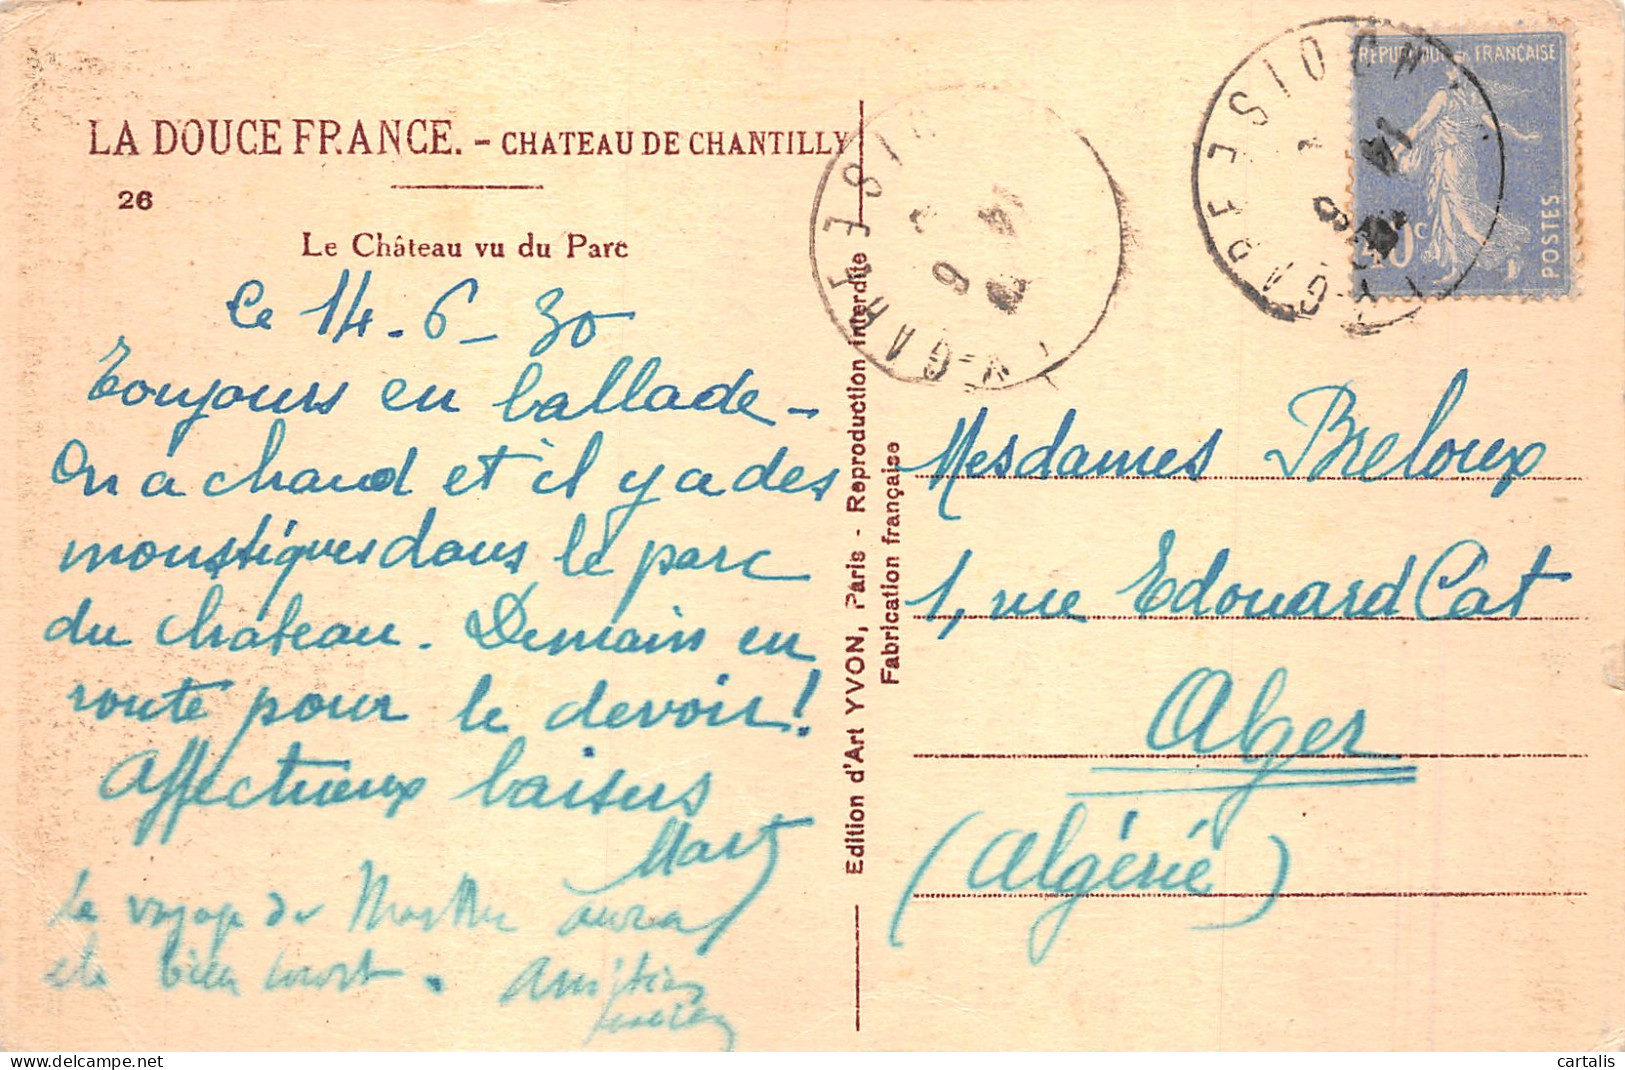 LA DOUCE FRANCE. - CHATEAU DE CHANTILLY
26
Le Château vu du Parc
Le 14-6-30
Toujours en ballade -
On a chaud et il y a des
moustiques dans le parc
du château. Demain en
route pour le devoir!
Affectueux baisers
Mart
Le voyage de aura
été bien court. Amitiés
Edition d'Art YVON, Paris - Reproduction interdite
Fabrication française
RÉPUBLIQUE FRANÇAISE
40c
POSTES
Mesdames Breloux
1, rue Edouard Cat
Alger
(Algérie)
cartalis
delcampe.net